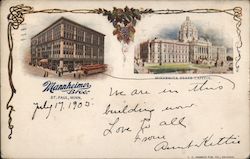 Mannheimer
Bros.
ST. PAUL, MINN.
MINNESOTA STATE CAPITOL
July 17, 1905
We are in this
building now
Love to all
From
Aunt Kittie